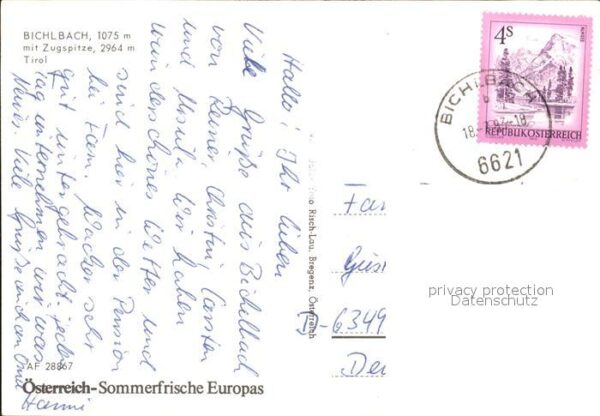 BICHLBACH, 1075 m
mit Zugspitze, 2964 m
Tirol
Hallo! Ihr lieben
Viele Grüße aus Bichlbach
von Reiner, Christin, Carsten
und Ursula. Wir haben
wunderschönes Wetter und
sind hier in der Pension
bei Fam. sehr
gut untergebracht. jeden
Tag unternehmen wir was
Neues. Viele Grüße auch an Oma
Hanni
AF 28867
Österreich-Sommerfrische Europas
Risch-Lau, Bregenz, Österreich
4S
ALMSEE
REPUBLIK ÖSTERREICH
BICHLBACH
6621
Fam
D-6349
privacy protection
Datenschutz